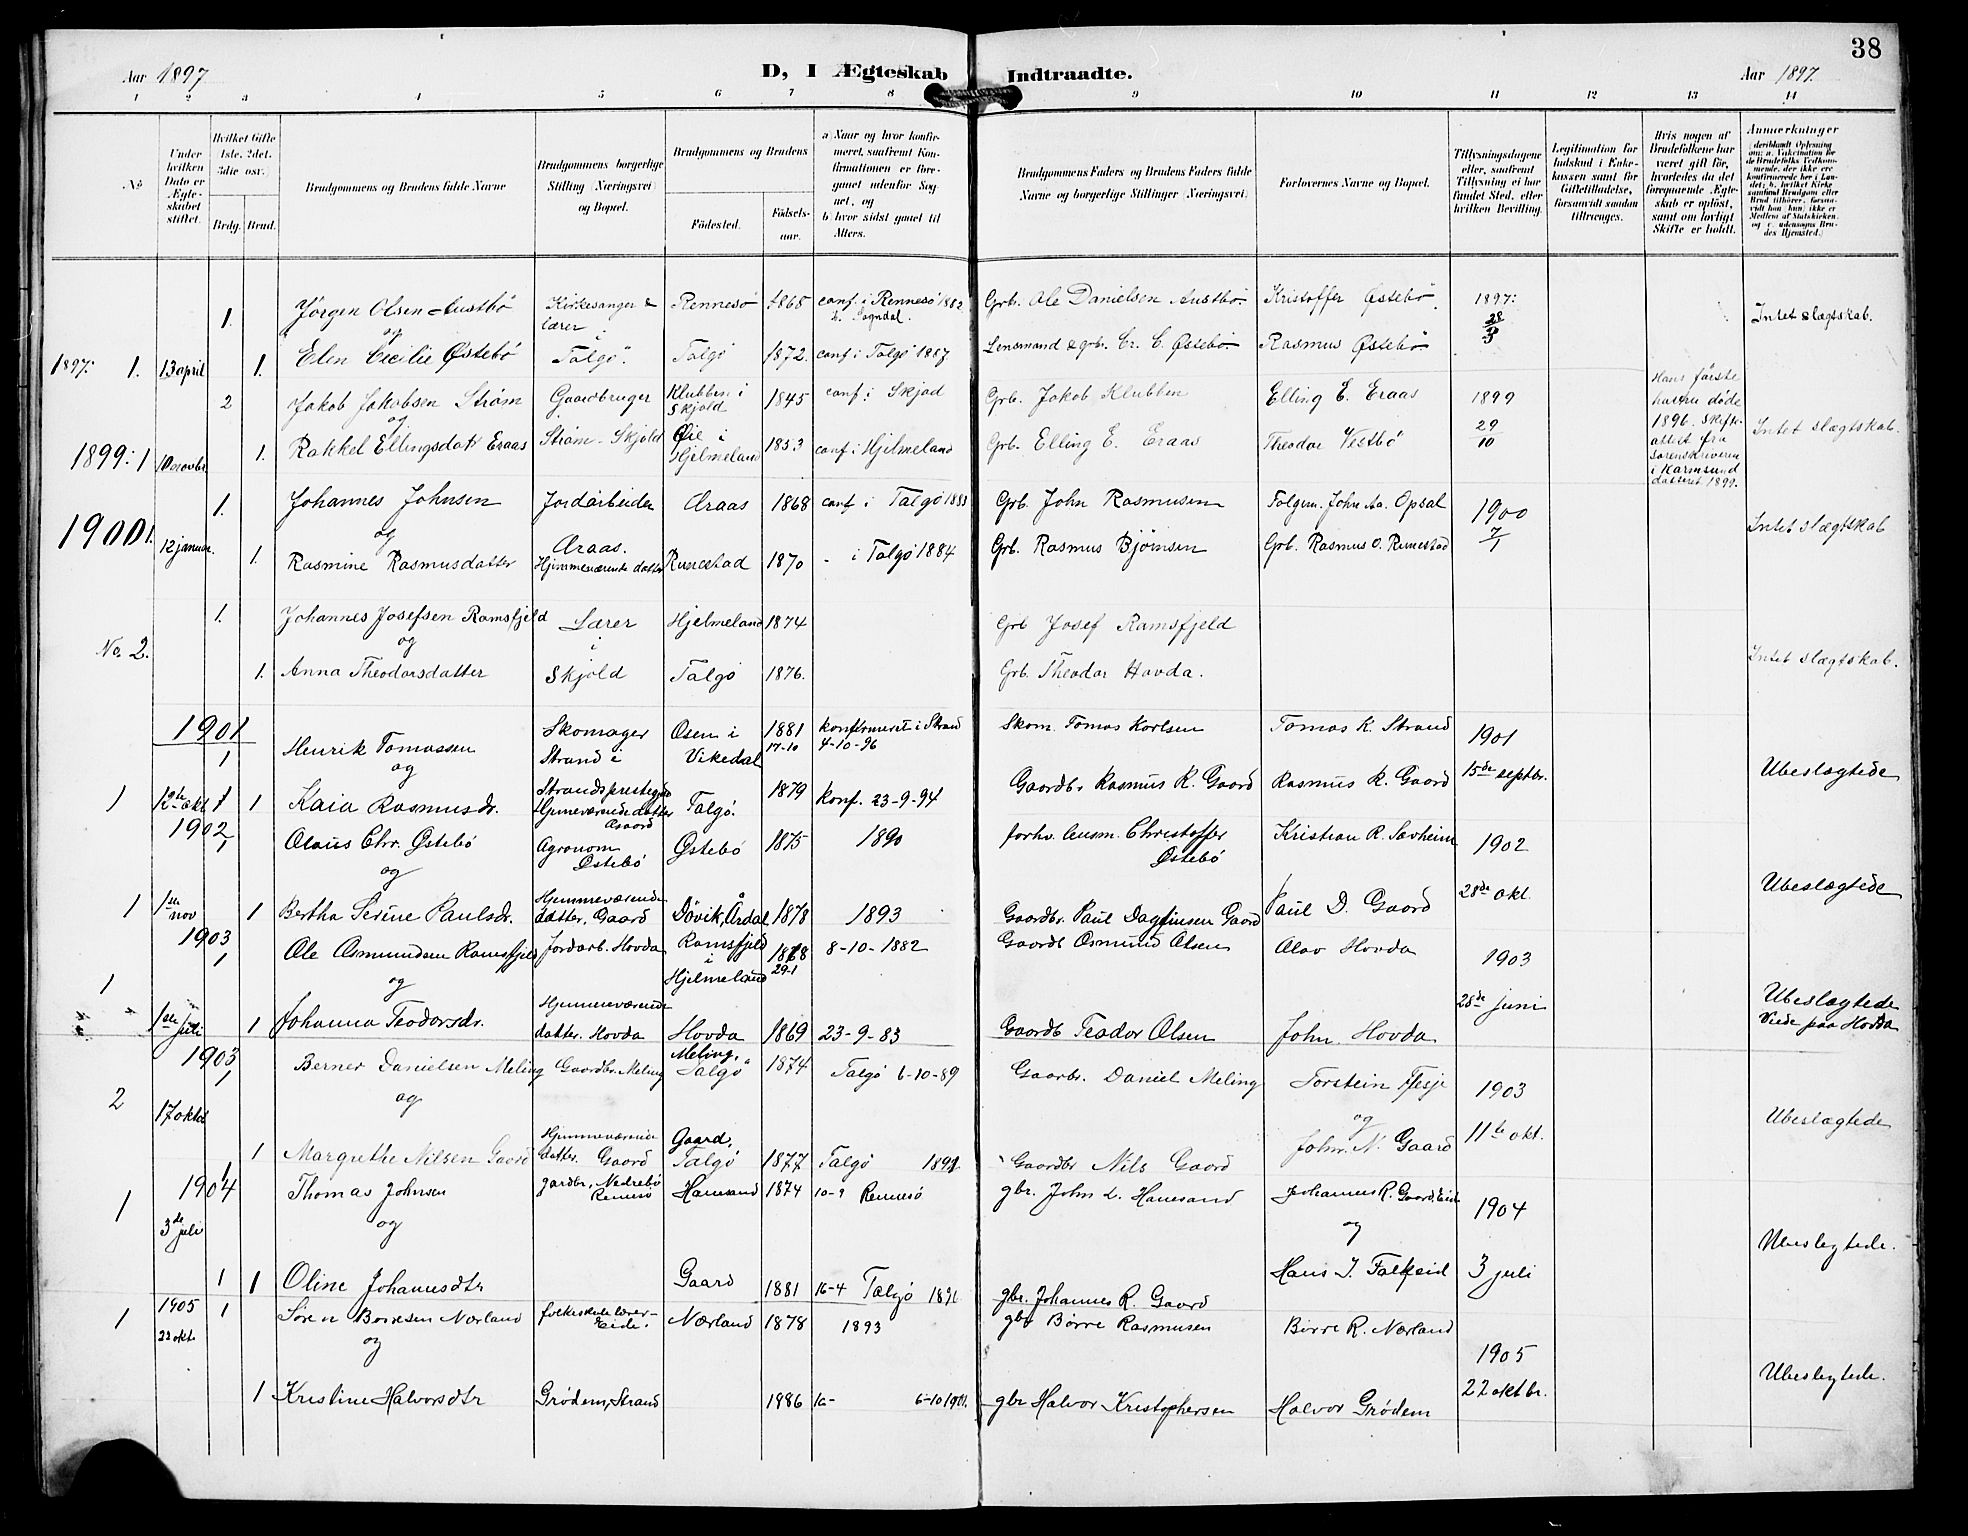 38
Aar 1897
D, I Ægteskab Indtraadte.
Aar 1897.
1 2 3 4 5 6 7 8 9 10 11 12 13 14
No
Under hvilken Dato er Ægteskabet stiftet.
Hvilket Gifte 1ste, 2det, 3die osv.)
Brdg. Brud.
Brudgommens og Brudens fulde Navne
Brudgommens borgerlige Stilling (Næringsvei) og Bopæl.
Brudgommens og Brudens
Fødested.
Fødselsaar.
a Naar og hvor konfirmeret, saafremt Konfirmationen er foregaaet udenfor Sognet, og
b hvor sidst gaaet til Alters.
Brudgommens Faders og Brudens Faders fulde Navne og borgerlige Stillinger (Næringsvei)
Forlovernes Navne og Bopæl.
Tillysningsdagene eller, saafremt Tillysning ei har fundet Sted, efter hvilken Bevilling.
Legitimation for Indskud i Enkekassen samt for Giftetilladelse, forsaavidt saadan tiltrænges.
Hvis nogen af Brudefolkene har været gift før, hvorledes da det foregaaende Ægteskab er opløst, samt om lovligt Skifte er holdt.
Anmærkninger
1. Jørgen Olsen Austbø Kirkesanger & Rennesø 1868 conf. i Rennesø 1882 Grb. Ole Danielsen Austbø. Kristoffer Østebø 1897: Intet slægtskab.
og lærer i b. Sogndal. 28/3
1897: 1. 13 april 1. Elen Cecilie Østebø Talgø. Talgø 1872. conf i Talgø 1887 Lensmand & grb. Cr. C. Østebø Rasmus Østebø
2 Jakob Jakobsen Strøm Gaardbruger Klubben i Skjold 1845 conf i Skjold Grb. Jakob Klubben Elling E. Eraas 1899 Hans første hustru døde 1896. Skifteattest fra sorenskriveren i Karmsund dateret 1899.
og
1899: 1 10 novbr. 1. Rakkel Ellingsdatr Eraas Strøm - Skjold Øie i Hjelmeland 1853 conf i Hjelmeland Grb. Elling E. Eraas Theodor Vestbø 29/10 Intet slægtskab.
1. Johannes Johnsen Jordarbeider Araas 1868 conf i Talgø 1883 Grb. John Rasmusen Folgem. John Aa. Opsal 1900 Intet slægtskab
og Araas. 7/1
1900 1. 12 januar. 1. Rasmine Rasmusdatter Hjemmeværende datter Runestad 1870 - i Talgø 1884 Grb. Rasmus Bjørnsen Grb. Rasmus O. Runestad
1. Johannes Josefsen Ramsfjeld Lærer Hjelmeland 1874 Grb Josef Ramsfjeld
No. 2. og i Intet slægtskab.
1. Anna Theodorsdatter Skjold Talgø 1876. Grb. Theodor Hovda.
1901
1 Henrik Tomassen Skomager Strand i Osen i Vikedal 1881 17-10 konfirmeret i Strand 4-10-96 Skom. Tomas Karlsen Tomas K. Strand 1901
og
1 12te okt 1 Kaia Rasmusdr. Strands prestegjæld Hjemeværende datter Gaard Talgø. 1879 konf. 23-9-94 Gaardbr Rasmus R. Gaard Rasmus R. Gaard 15de septbr. Ubeslægtede
1902
1 Olaus Chr. Østebø Agronom Østebø Østebø 1875 1890 forhv. lensm. Christoffer Østebø Kristian R. Sævheim 1902
og
1 1ste nov 1 Bertha Serine Paulsdr. Hjemmeværende datter. Gaard Døvik, Årdal 1878 1893 Gaardbr. Paul Dagfinsen Gaard Paul D. Gaard 28de okt. Ubeslægtede
1903
1 Ole Osmundsen Ramsfjeld Jordarb. Hovda Ramsfjeld i Hjelmeland 1868 29-1 8-10-1882 Gaardb Osmund Olsen Olav Hovda 1903
og
1 1ste juli 1 Johanna Teodorsdr. Hjemmeværende datter. Hovda Hovda 1869 23-9-83 Gaardb Teodor Olsen John Hovda 28de juni Ubeslægtede Viede paa Hovda
1903
1 Berner Danielsen Meling Gaardbr. Meling Meling, Talgø 1874 Talgø 6-10-89 Gaarbr. Daniel Meling Torstein Tesje 1903
2 17 oktbr og og Ubeslægtede
1 Margrethe Nilsen Gaard Hjemmeværende datter. Gaard Gaard, Talgø 1877 Talgø 1891 Gaardbr Nils Gaard John. N. Gaard 11te okt.
1904
1 Thomas Johnsen gardbr. Nedrebø Rennesø Hanesand 1874 10-9 Rennesø gbr. John L. Hanesand Johannes R. Gaard, Eide 1904
3de juli og og Ubeslegtede.
1 1 Oline Johannesdtr Gaard 1881 16-4 Talgø 1896 gbr. Johannes R. Gaard Hans J. Falkeid 3 juli
1 1905 22 okt. 1 Søren Børresen Nærland folkeskolelærer - Eide. Nærland 1878 1893 gbr Børre Rasmusen Børre R. Nærland 1905
og Ubeslegtede.
1 Kristine Halvorsdtr Grødem, Strand 1886 6-10 1901. gbr Halvor Kristophersen Halvor Grødem 22 oktbr.